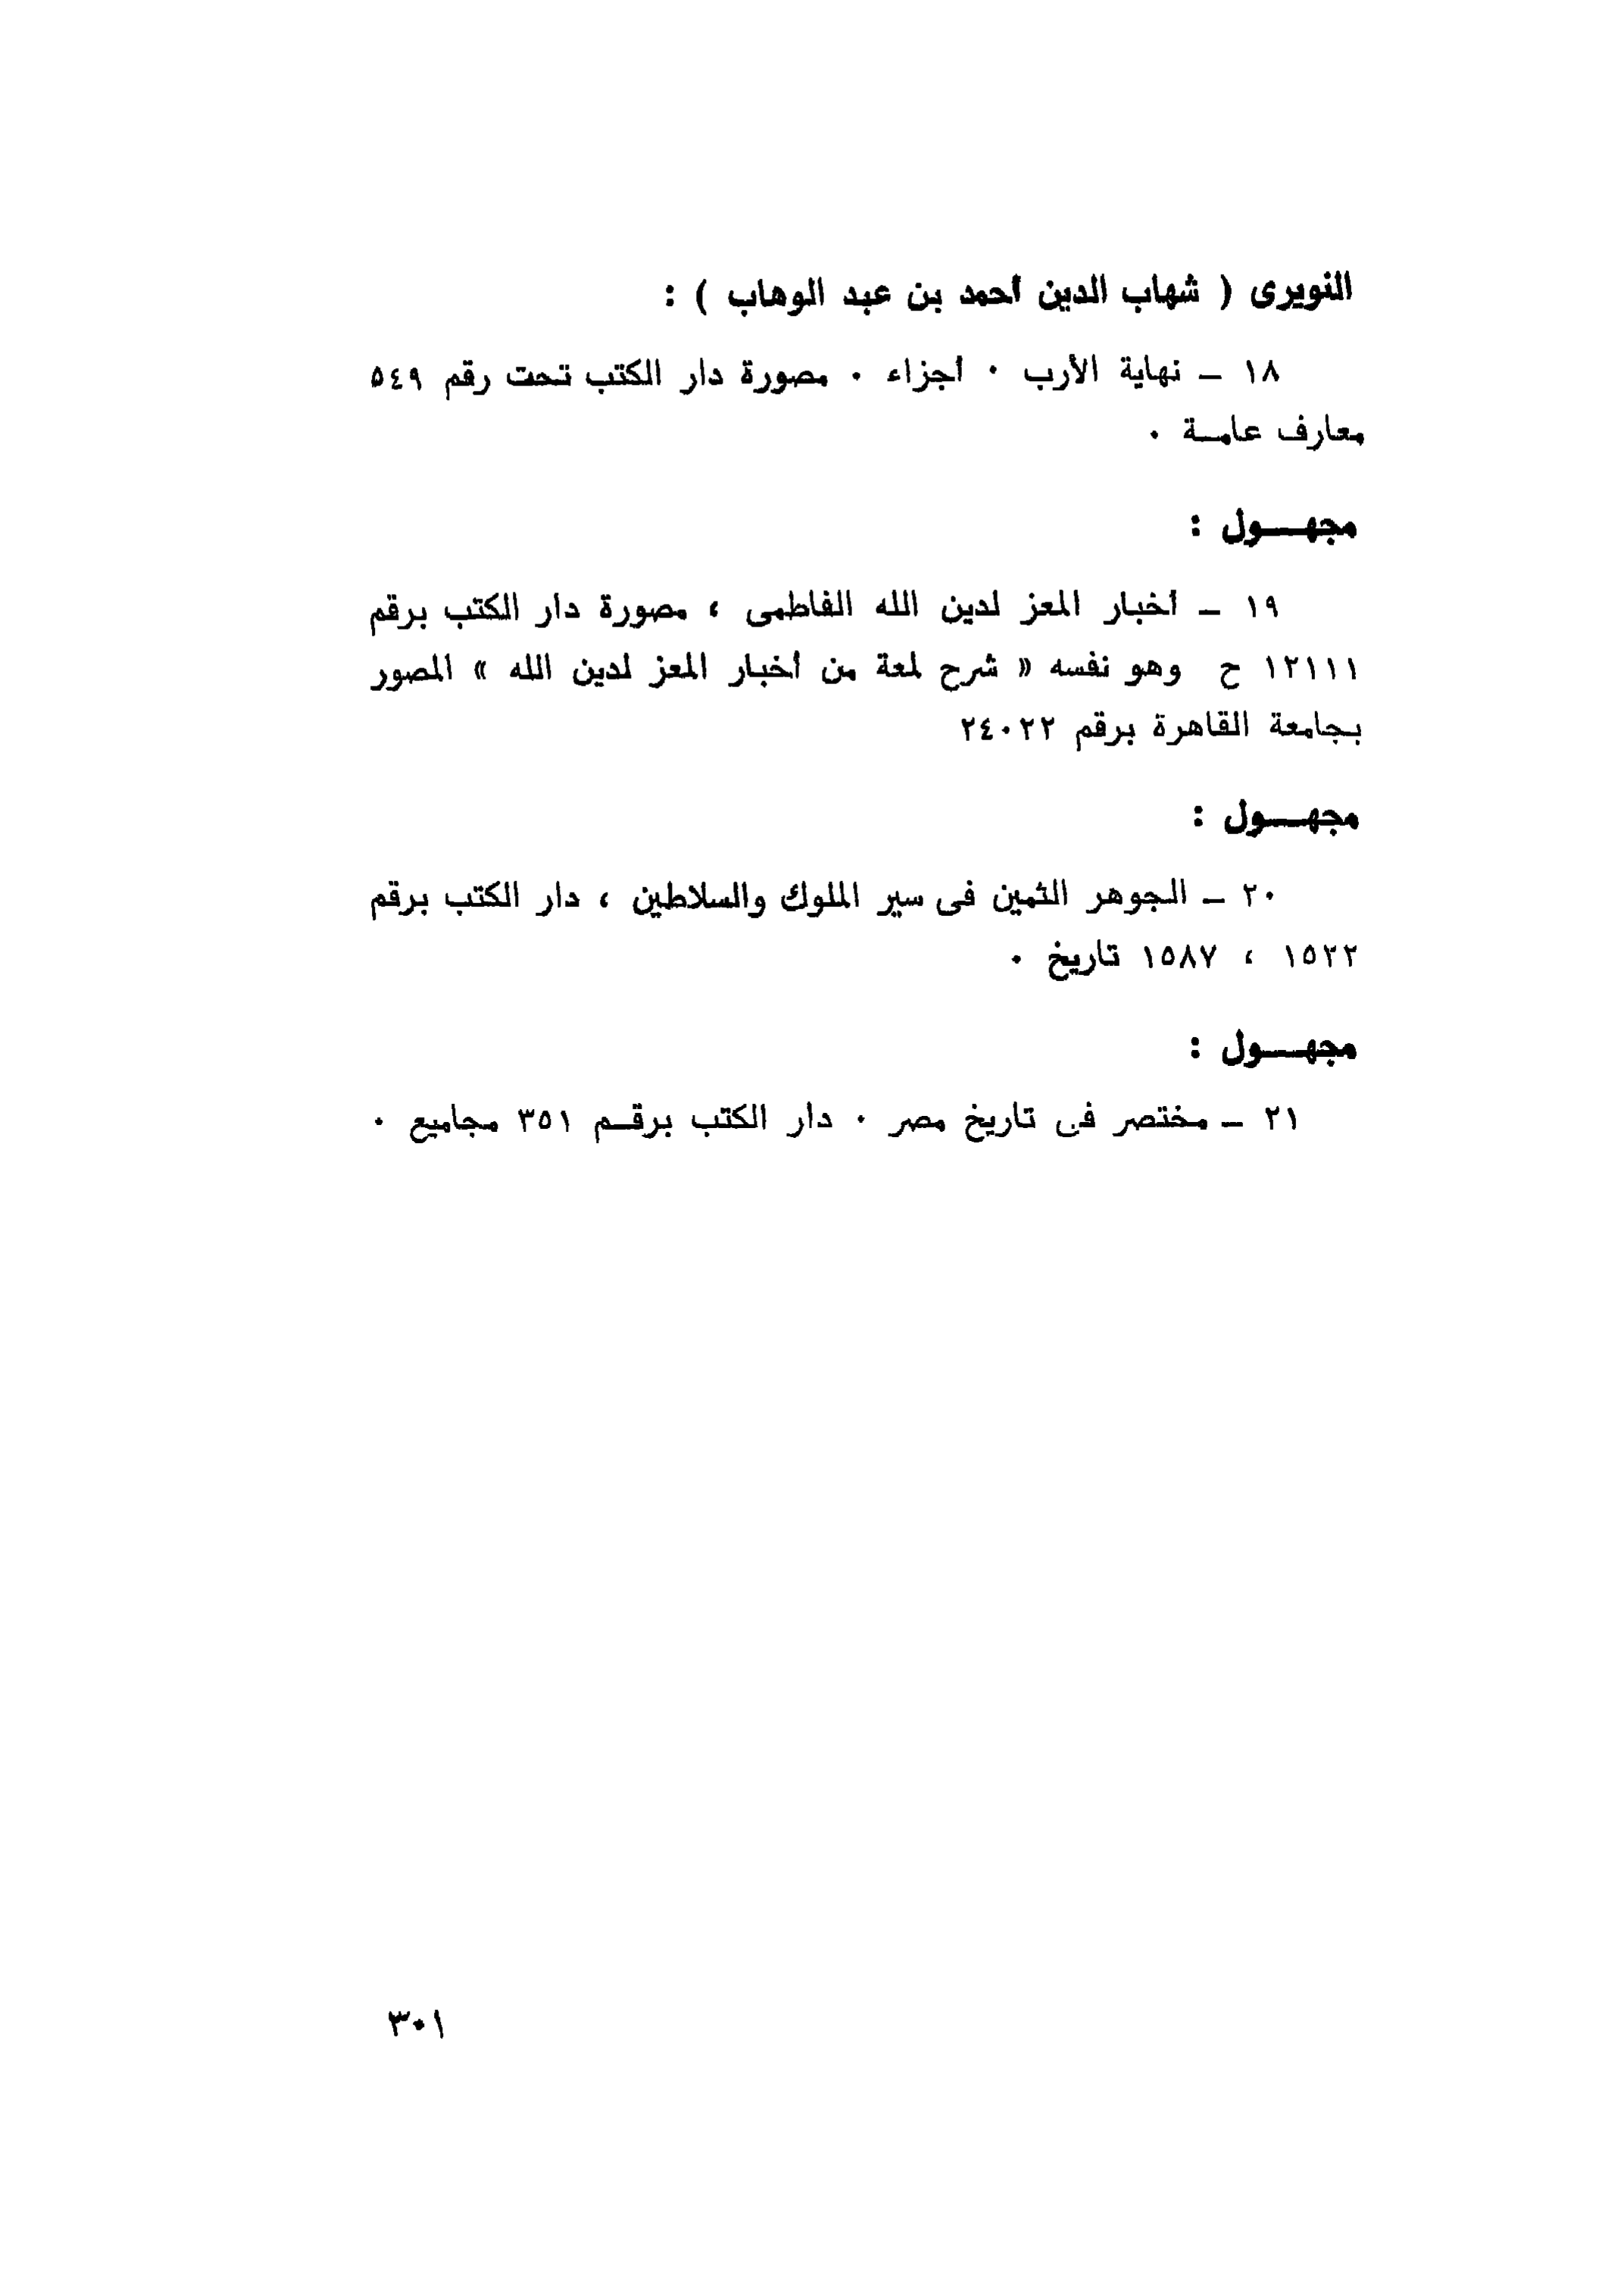 النويرى ( شهاب الدين أحمد بن عبد الوهاب ) :
١٨ – نهاية الأرب ٠ أجزاء ٠ مصورة دار الكتب تحت رقم ٥٤٩
معارف عامـــة ٠
مجهـــــول :
١٩ – أخبار المعز لدين الله الفاطمى ، مصورة دار الكتب برقم
١٢١١١ ح وهو نفسه « شرح لمعة من أخبار المعز لدين الله » المصور
بجامعة القاهرة برقم ٢٤٠٢٢
مجهـــــول :
٢٠ – الجوهر الثمين فى سير الملوك والسلاطين ، دار الكتب برقم
١٥٢٢ ، ١٥٨٧ تاريخ ٠
مجهـــــول :
٢١ – مختصر فى تاريخ مصر ٠ دار الكتب برقـــم ٣٥١ مجاميع ٠
٣٠١